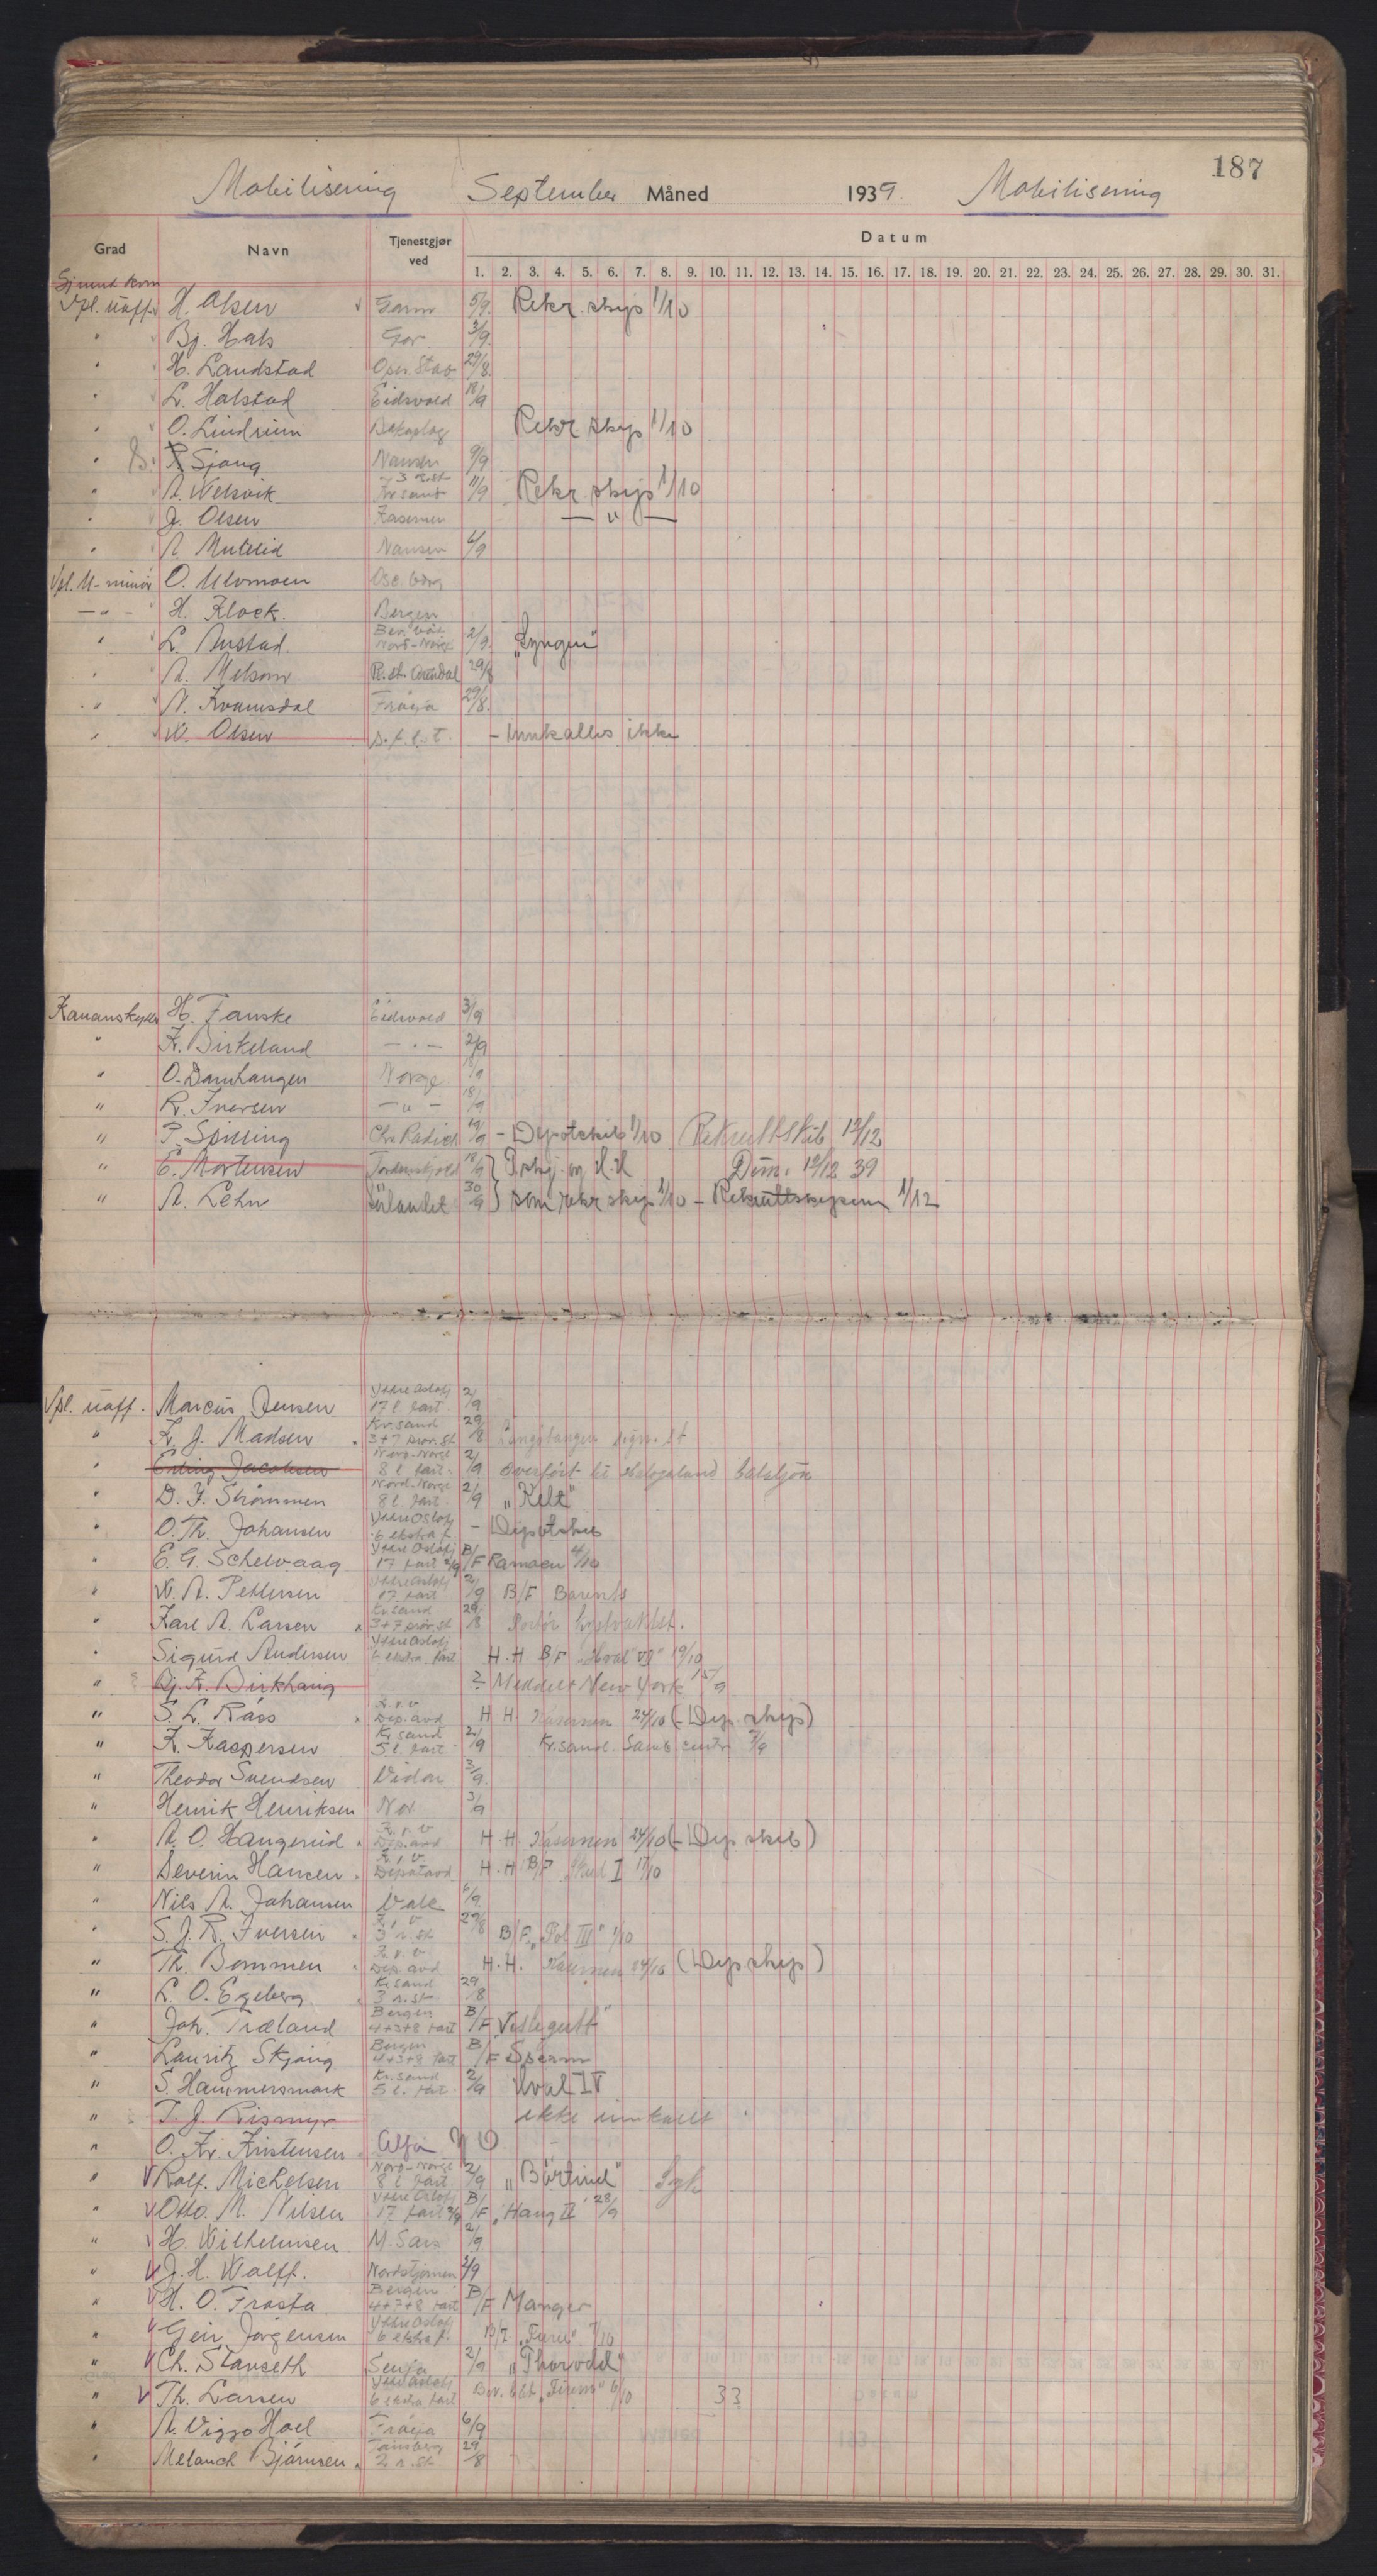 187
Mobilisering September Måned 1939. Mobilisering
Grad Navn Tjenestgjør ved Datum
1. 2. 3. 4. 5. 6. 7. 8. 9. 10. 11. 12. 13. 14. 15. 16. 17. 18. 19. 20. 21. 22. 23. 24. 25. 26. 27. 28. 29. 30. 31.
Vpl. uoff. H. Olsen Garm 5/9. Rekr. skys 1/10
" Bj. Hals Gor 3/9.
" H. Landstad Oper. Stab 29/8.
" L. Halstad Eidsvold 18/9
" O. Lindrum Rekr skys 1/10
" Sjong Nansen 9/9
" A. Welsvik Kr sand 11/9 Rekr. skys 1/10
" J. Olsen Kasernen — " —
" A. Mutelid Nansen 6/9
Vpl. U-minør O. Ulvmoen Osc.borg
— " — H. Klock. Bergen
" L. Austad. Bev. båt Nord-Norge 2/9. "Lyngen"
" A. Melsom R. st. Arendal 29/8
" N. Kvamsdal Frøya 29/8.
" W. Olsen s.f.l.t. - Innkalles ikke
Kanonskytter H. Fauske Eidsvold 3/9
" K. Birkeland — " — 2/9
" O. Damhaugen Norge /9
" R. Iversen — " — 18/9
" P. Spilling Chr. Radich 19/9 - Depotskib 1/10 Rekruttskib 12/12
" E. Mortensen Tordenskjold 18/9 } P.skj. og H.H Dim. 12/12 39
" A. Lehn Sørlandet 30/9 } som rekr skys 1/10 - Rekruttskysen 1/12
Vpl. uoff. Marcus Jensen Ytre Oslofj 17 l. fart. 2/9
" K. J. Madsen Kr.sand 3+7 prøv. st 29/8 Langøtangen sign. st
" Erling Jacobsen Nord-Norge 8 l. fart. 2/9 overført til Hålogaland bataljon
" D. F. Strømmen Nord-Norge 8 l. fart. 2/9 "Kelt"
" O. Th. Johansen Ytre Oslofj 6 ekstra f. - Depotskib
" E. G. Schelvaag Ytre Oslofj 17 fart 2/9 B/F Ramoen 4/10
" W. A. Pettersen Ytre Oslofj 17 fart 2/9 B/F Barents
" Karl A. Larsen Kr.sand 3+7 prøv. st 29/8 Portør kystvaktst.
" Sigurd Andersen Ytre Oslofj 6 ekstra fart H.H B/F "Hval VI" 19/10
" Bj. K. Birkhaug ? Meddelt New York 15/9
" S. L. Råss K.r.v Dep. avd H H. Kasernen 24/10 (- Dep. skys)
" K. Kaspersen Kr.sand 5 l. fart 2/9 Kr.sand. Samb.centr 7/9
" Theodor Svendsen Vidar 3/9.
" Henrik Henriksen Nor 3/9
" A. O. Haugerud K.r.v Dep. avd H.H. Kasernen 24/10 (- Dep skib)
" Severin Hansen K.r.v Depotavd H.H B/F Skud I 17/10
" Nils A. Johansen Vale 6/9
" S. J. R. Iversen K.r.v 3 r. st 29/8 B/F. "Pol III" 1/10
" Th. Bommen K.r.v Dep. avd H.H. Kasernen 24/10 (Dep skys)
" L. O. Egeberg Kr.sand 3 r. st 29/8
" Joh. Træland Bergen 4+3+8 fart B/F "Vestegutt"
" Lauritz Skjong Bergen 4+3+8 fart B/F Sperm
" S. Hammersmark Kr.sand 5 l. fart. 2/9 Hval IV
" T. J. Rismyr ikke innkalt
" O. Kr. Kristensen Alfa
" Rolf. Michelsen Nord-Norge 8 l fart. 2/9 "Börtind" Syk
" Otto. M. Nilsen Ytre Oslofj 17 fart 2/9 B/F "Haug II" 28/9
" H. Wilhelmsen M. Sars 2/9
" J. H. Wolff. Nordstjernen 2/9
" H. O. Frosta Bergen 4+7+8 fart B/F Manger
" Geir Jørgensen Ytre Oslofj 6 ekstra f. B/F "Furu" 7/10
" Ch. Stanseth Senja 2/9 "Thorodd"
" Th. Larsen Ytre Oslofj 6 ekstra fart Bev. båt "Firern" 6/10 33
" A. Viggo Hoel Frøya 6/9
" Melanch Bjørnsen Tønsberg 2 r. st 29/8